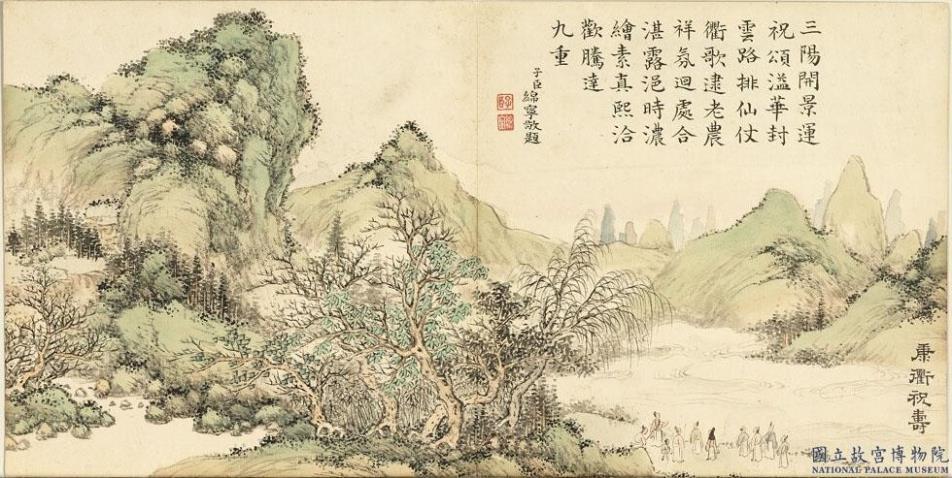 三陽開景運
祝頌溢華封
雲路排仙仗
衢歌逮老農
祥氛迴處合
湛露浥時濃
繪素真熙洽
歡騰達
九重
子臣綿寧敬題
康衢祝壽
國立故宮博物院
NATIONAL PALACE MUSEUM